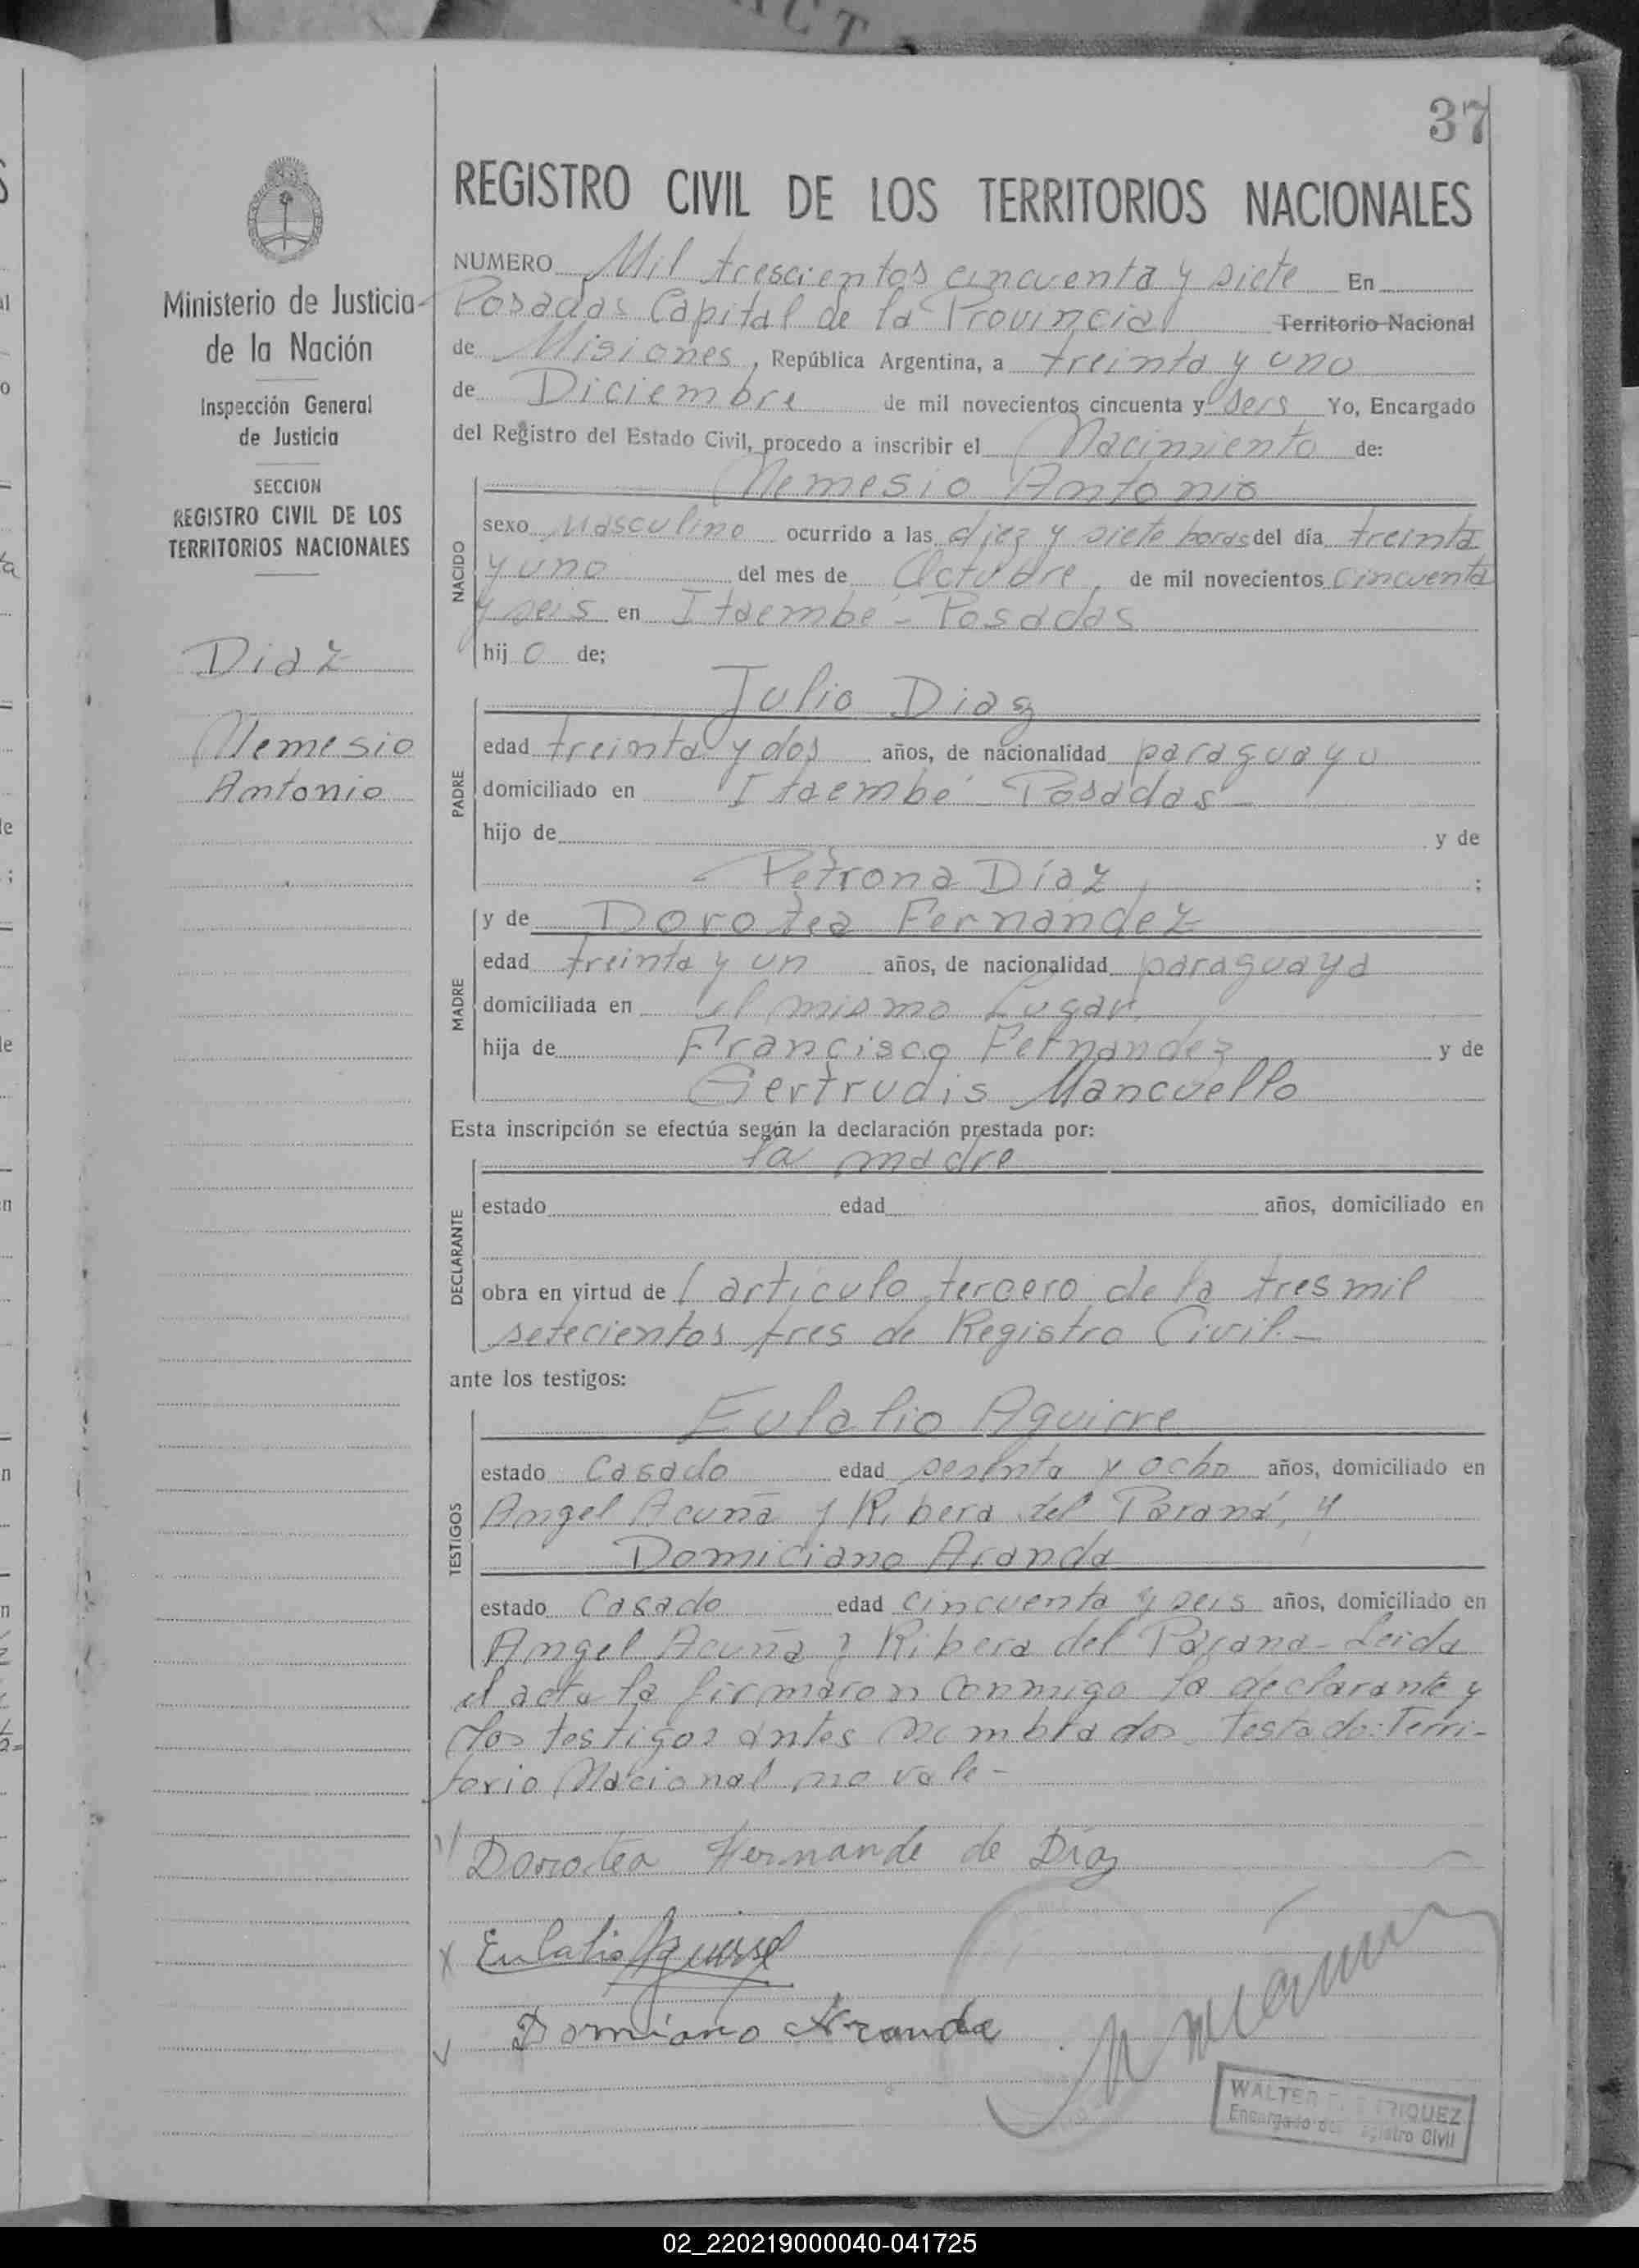 37
REGISTRO CIVIL DE LOS TERRITORIOS NACIONALES
Ministerio de Justicia
de la Nación
Inspección General
de Justicia
SECCION
REGISTRO CIVIL DE LOS
TERRITORIOS NACIONALES
Diaz
Nemesio
Antonio
NUMERO Mil trescientos cincuenta y siete En
Posadas Capital de la Provincia Territorio Nacional
de Misiones, República Argentina, a treinta y uno
de Diciembre de mil novecientos cincuenta y seis Yo, Encargado
del Registro del Estado Civil, procedo a inscribir el Nacimiento de:
Nemesio Antonio
NACIDO
sexo Masculino ocurrido a las diez y siete horas del día treinta
y uno del mes de Octubre, de mil novecientos cincuenta
y seis en Itaembé - Posadas
hij o de;
Julio Diaz
PADRE
edad treinta y dos años, de nacionalidad paraguayo
domiciliado en Itaembé - Posadas -
hijo de y de
Petrona Díaz ;
y de Dorotea Fernández
MADRE
edad treinta y un años, de nacionalidad paraguaya
domiciliada en el mismo Lugar
hija de Francisco Fernandez y de
Gertrudis Mancuello
Esta inscripción se efectúa según la declaración prestada por:
la madre
DECLARANTE
estado edad años, domiciliado en
obra en virtud de l artículo tercero de la tres mil
setecientos tres de Registro Civil.-
ante los testigos:
Eulalio Aguirre
TESTIGOS
estado Casado edad sesenta y ocho años, domiciliado en
Angel Acuña y Ribera del Paraná, y
Domiciano Aranda
estado Casado edad cincuenta y seis años, domiciliado en
Angel Acuña y Ribera del Parana - Leida
el acta la firmaron conmigo la declarante y
los testigos antes nombrados. Testado: Terri-
torio Nacional no vale -
Dorotea Hernande de Díaz
Eulalio Aguirre
Domiano Aranda
WALTER
Encargado del Registro Civil
02_220219000040-041725